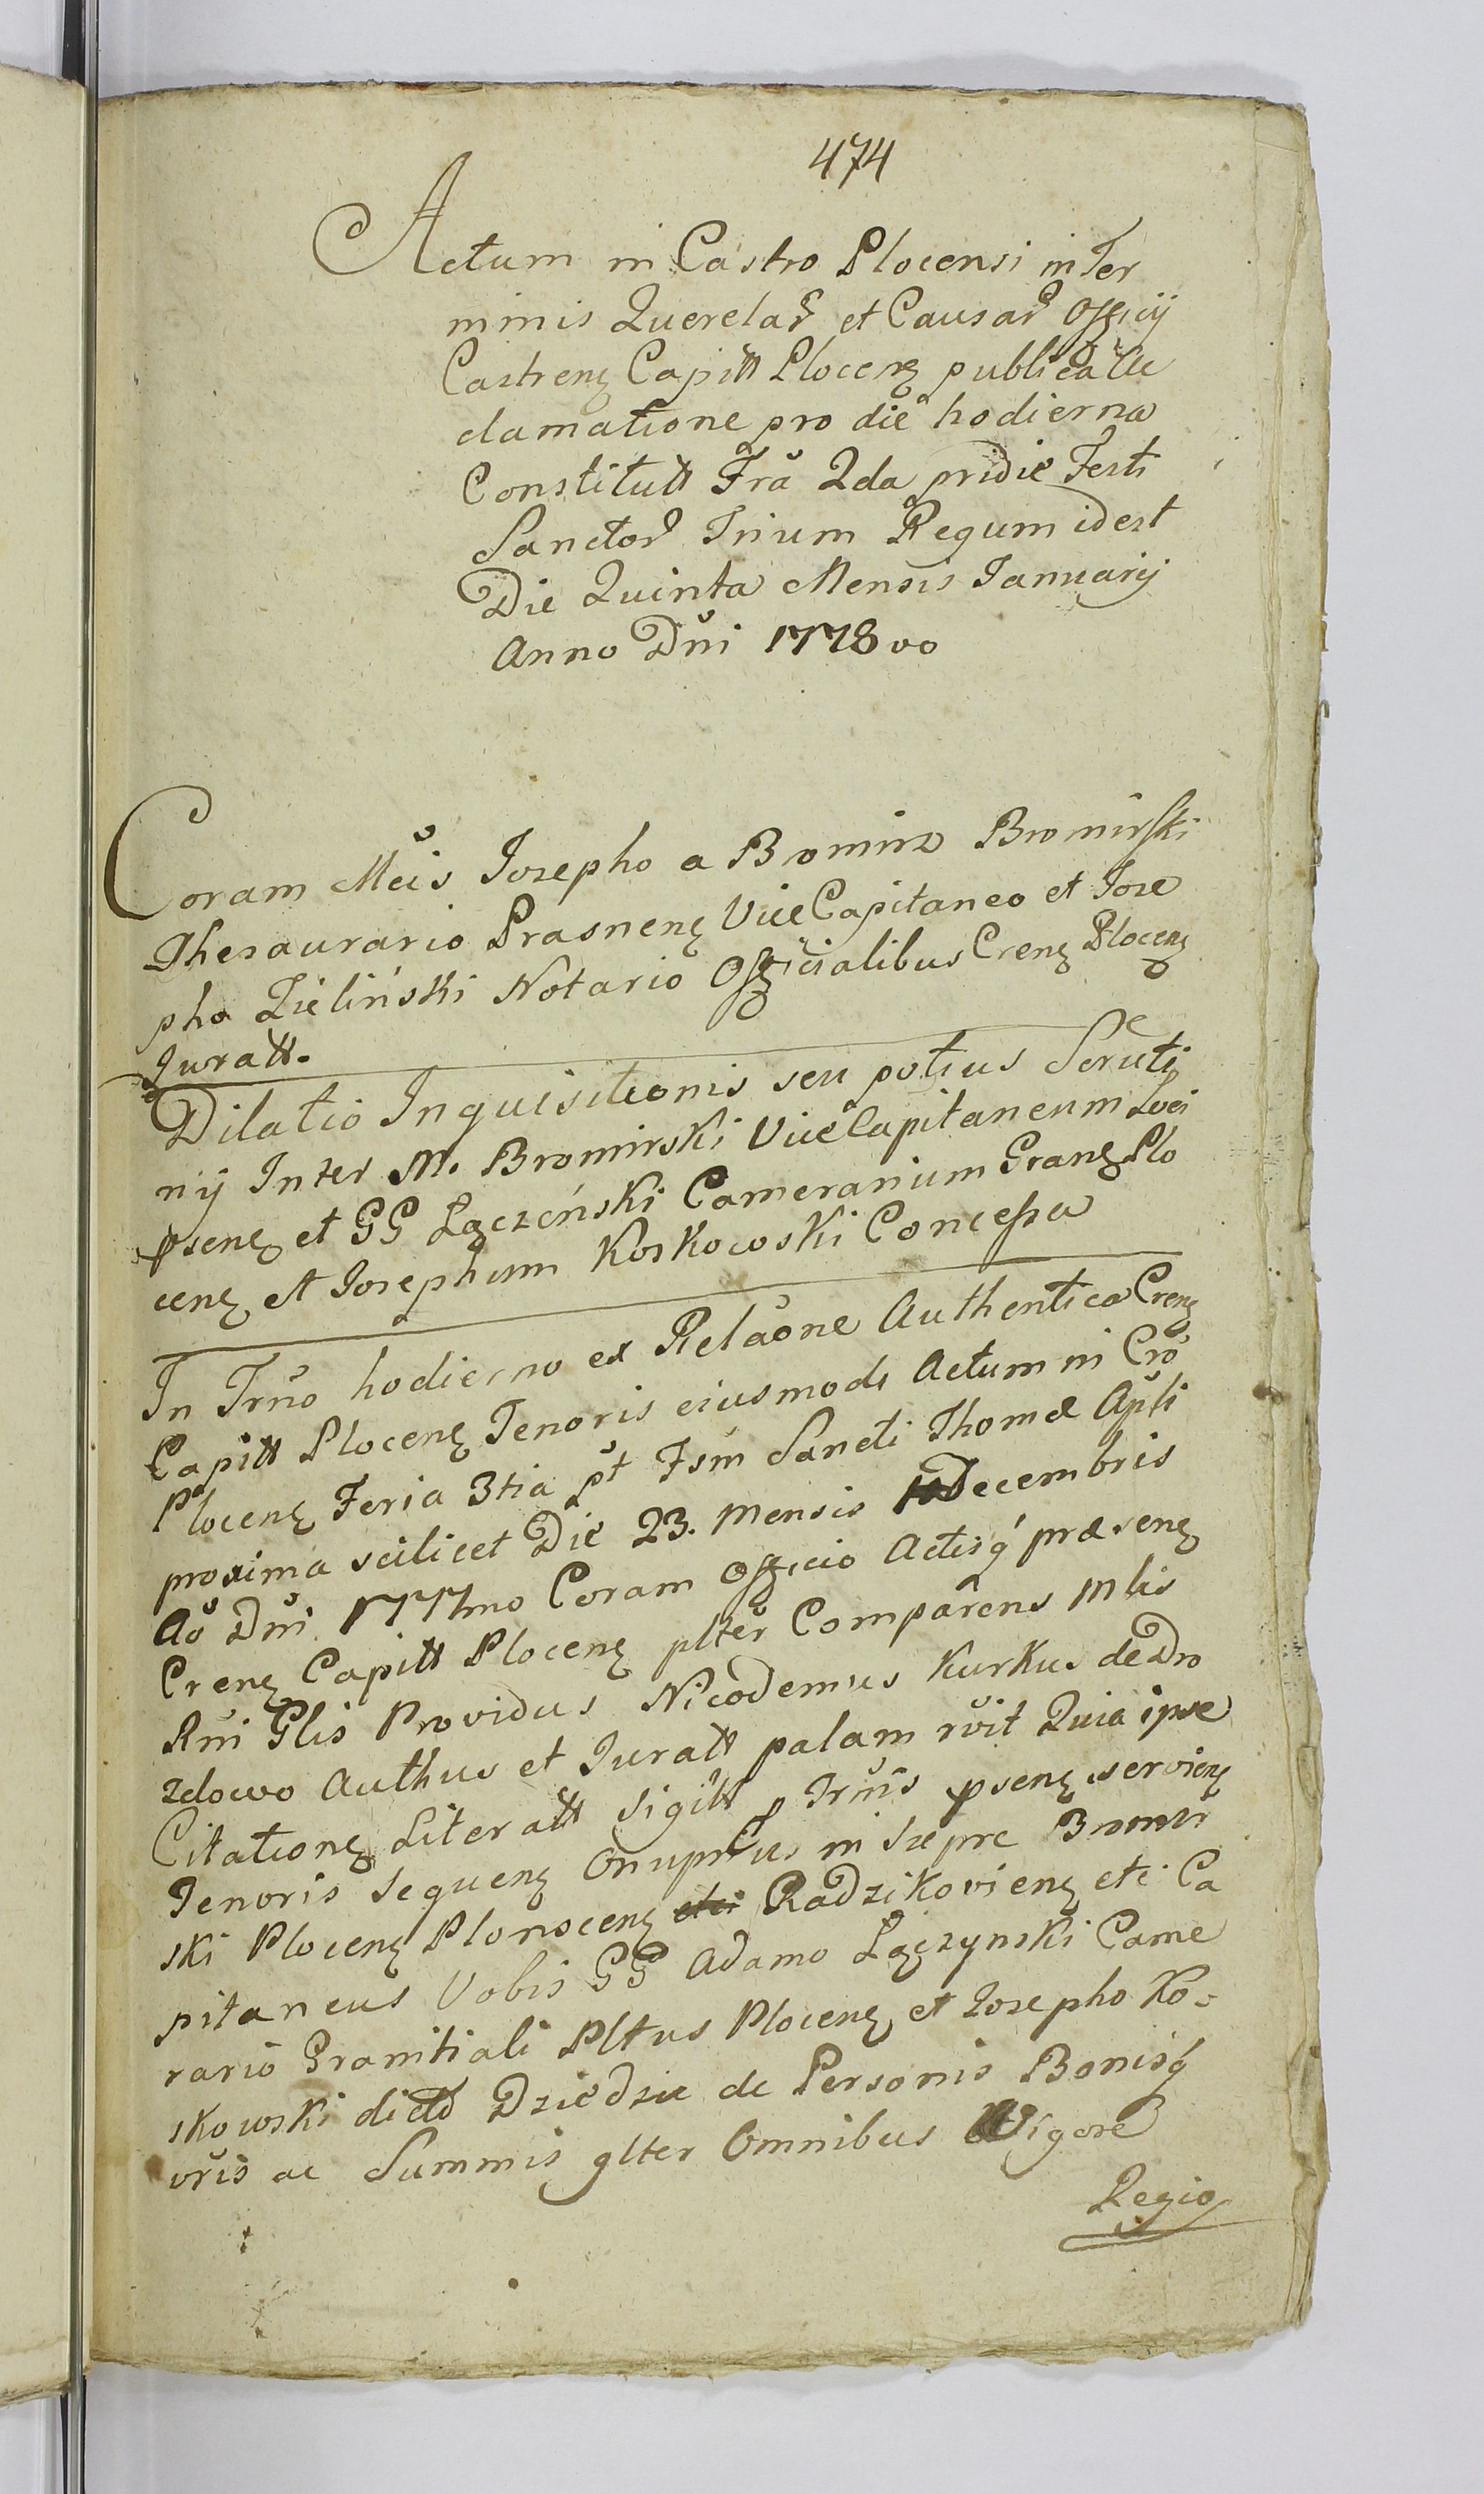 474
Actum in Castro Plocensi in Ter
minis Querelar et Causar Officij
Castren Capitt Plocen publica Ac
clamatione pro die hodierna
Constitutt Fra 2da pridie Festi
Sanctor Trium Regum idest
Die Quinta Mensis Januarij
Anno Dni 1778vo
Coram Mcis Josepho a Bromirz Bromirski
Thesaurario Prasnen ViceCapitaneo et Jose
pho Zieliński Notario Officialibus Cren Plocen
Juratt.
Dilatio Inquisitionis seu potius Scruti
nij Inter M. Bromirski ViceCapitaneum Loci
psen et GG Łączeński Camerarium Gran Plo
cen et Josephum Koskowski Concessa
In Trno hodierno ex Relaone Authentica Cren
Capitt Plocen Tenoris eiusmodi Actum in Cro
Plocen Feria 3tia pt Fsm Sancti Thomæ Apli
proxima scilicet Die 23. Mensis Decembris
Ao Dni 1777mo Coram Officio Actisq præsen
Cren Capitt Plocen plter Comparens Mlis
Rni Glis Providus Nicodemus Kurkus de Dro
zdowo Authus et Juratt palam rvit Quia ipse
Citation Literatt Sigitt p Trnis psen servien
Tenoris Sequen Onuprius in Siepre Bromir
ski Plocen Plonscen etc Radzikovien etc Ca
pitaneus Vobis GG Adamo Łączynski Came
rario Granitiali Pltus Plocen et Josepho Ko=
skowski dicto Dziedzic de Personis Bonisq
vris ac Summis glter Omnibus Vigore
Regio